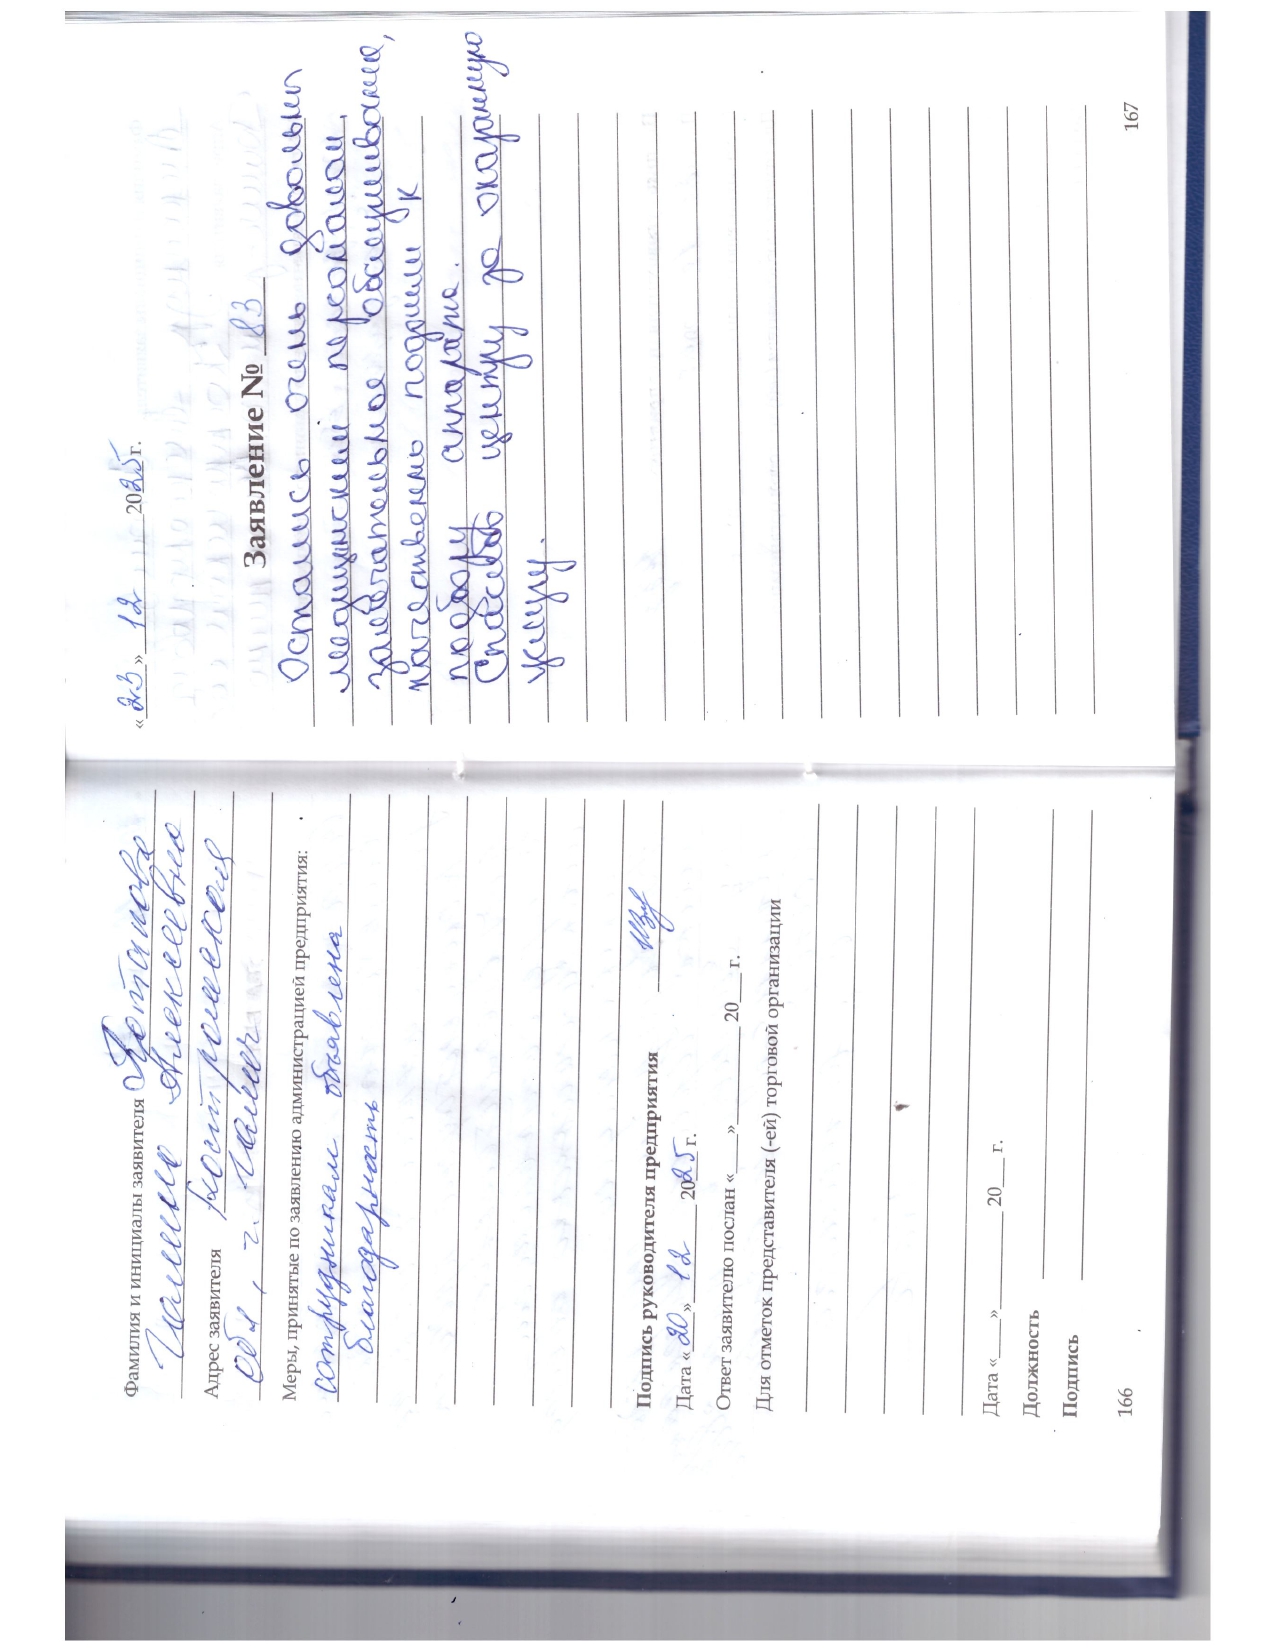 Фамилия и инициалы заявителя Потапова
Галина Алексеевна
Адрес заявителя Костромская
обл, г. Галич
Меры, принятые по заявлению администрацией предприятия:
сотрудникам объявлена
благодарность
Подпись руководителя предприятия
Дата «20» 12 2025 г.
Ответ заявителю послан «___»________ 20___ г.
Для отметок представителя (-ей) торговой организации
Дата «___»________ 20___ г.
Должность
Подпись
166
«23» 12 2025 г.
Заявление № 83
Остались очень довольны
медицинским персоналом,
замечательное обслуживание,
качественно подошли к
подбору аппарата.
Спасибо центру за оказанную
услугу.
167